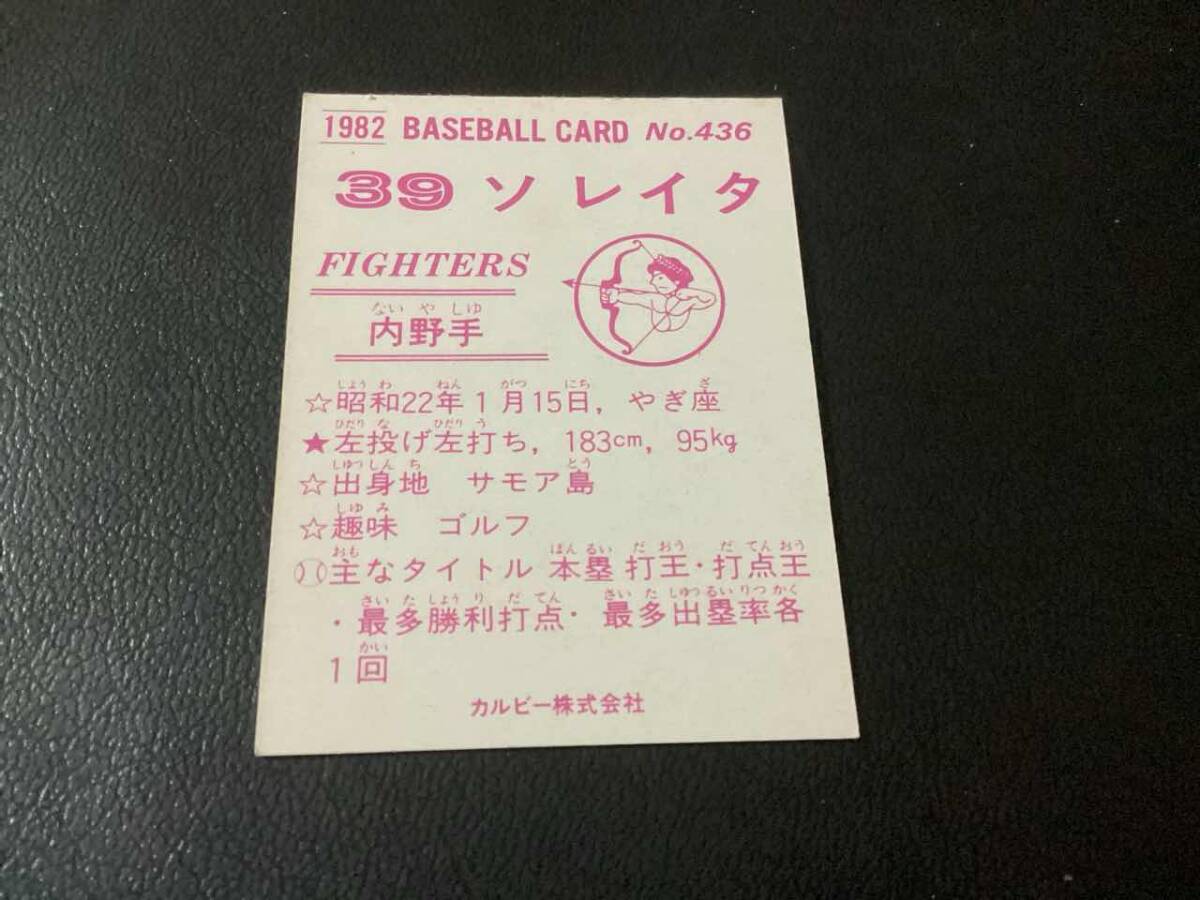 1982 BASEBALL CARD No.436
39 ソレイタ
FIGHTERS
ない や しゆ
内野手
しよう わ ねん がつ にち ざ
☆昭和22年1月15日, やぎ座
ひだり な ひだり う
★左投げ左打ち, 183cm, 95kg
しゆつ しん ち とう
☆出身地 サモア島
しゆ み
☆趣味 ゴルフ
おも ほん るい だ おう だ てん おう
主なタイトル 本塁打王・打点王
さい た しよう り だ てん さい た しゆつ るい りつ かく
・最多勝利打点・最多出塁率各
かい
1回
カルビー株式会社